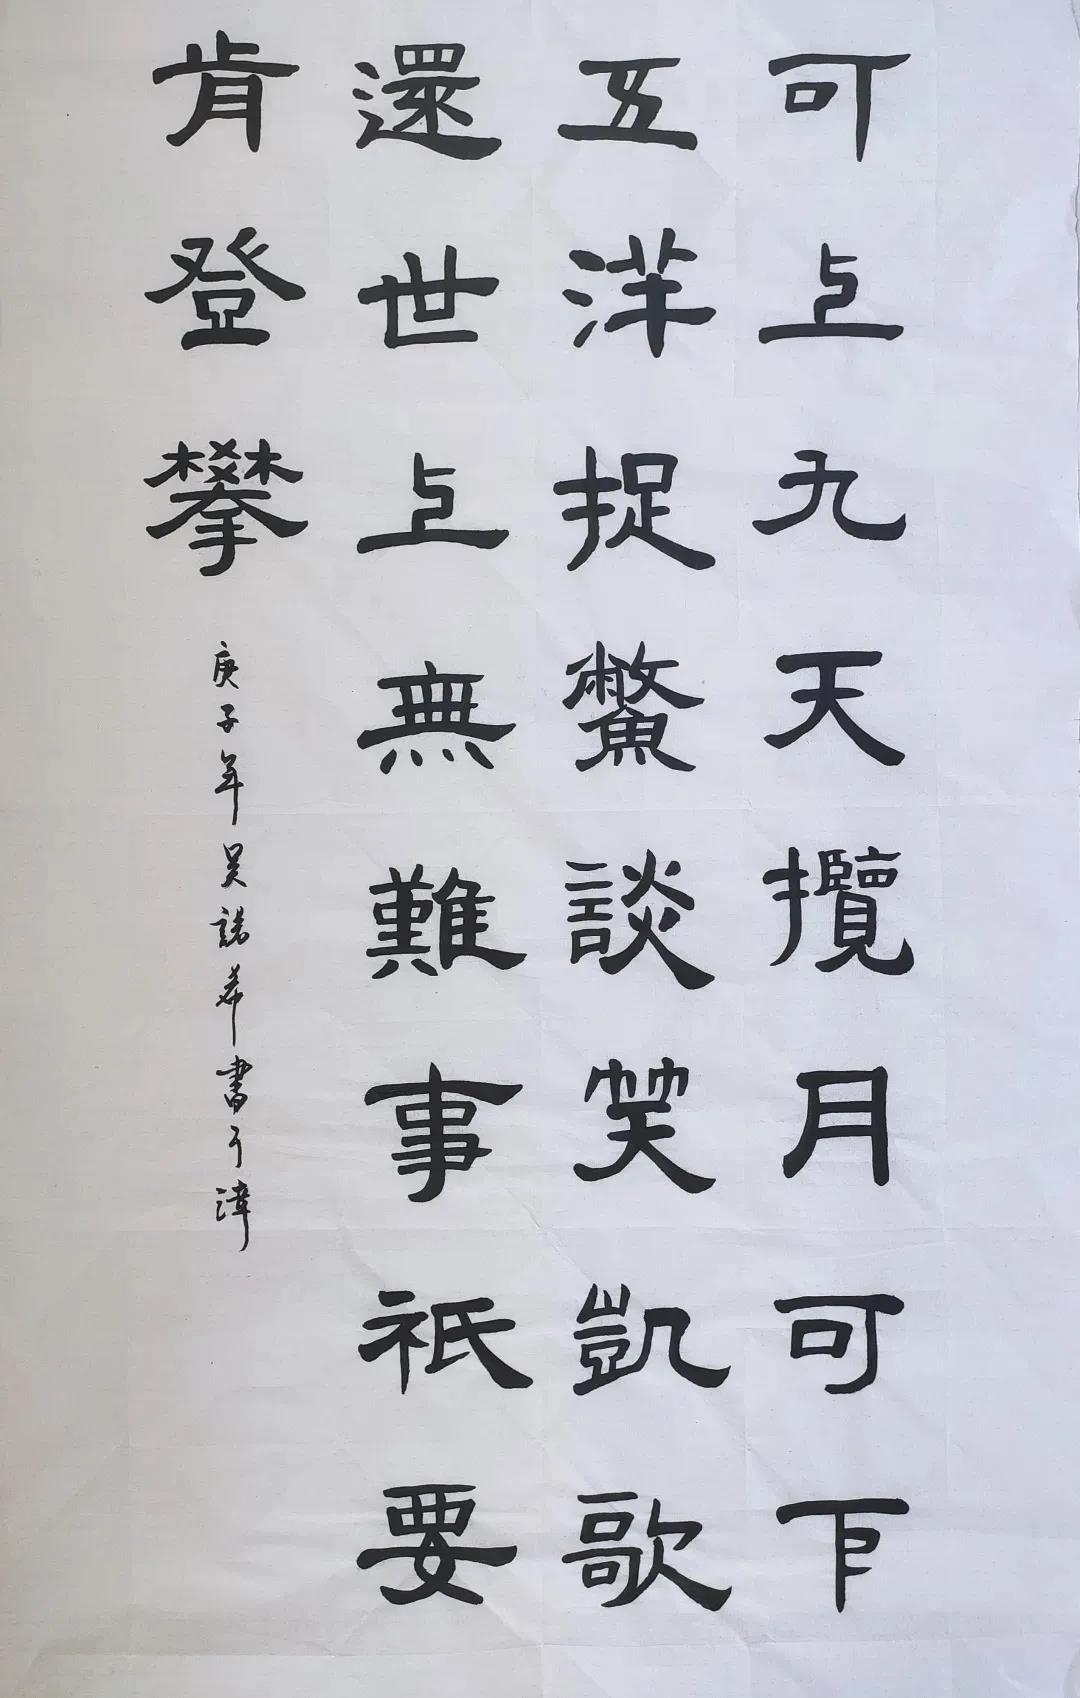 可上九天攬月可下
五洋捉鱉談笑凱歌
還世上無難事祇要
肯登攀
庚子年吴諾希書于漳